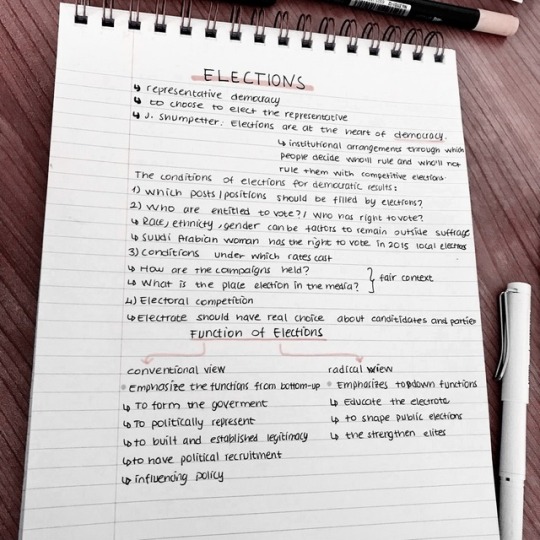 ELECTIONS
↳ representative democracy
↳ to choose to elect the representative
↳ J. Shumpetter. Elections are at the heart of democracy.
↳ institutional arrangements through which
people decide who'll rule and who'll not
rule them with competitive elections.
The conditions of elections for democratic results:
1) Which posts/positions should be filled by elections?
2) Who are entitled to vote?/ Who has right to vote?
↳ Race, ethnicity, gender can be factors to remain outside suffrage
↳ Suudi Arabian woman has the right to vote in 2015 local elections
3) conditions under which rates cast
↳ How are the campaigns held?
↳ What is the place election in the media? } fair context
4) Electoral competition
↳ Electrate should have real choice about canditidates and parties
Function of Elections
conventional view radical view
• Emphasize the functions from bottom-up • Emphasizes topdown functions
↳ To form the goverment ↳ Educate the electrote
↳ To politically represent ↳ to shape public elections
↳ to built and established legitimacy ↳ the strengthen elites
↳ to have political recruitment
↳ influencing policy